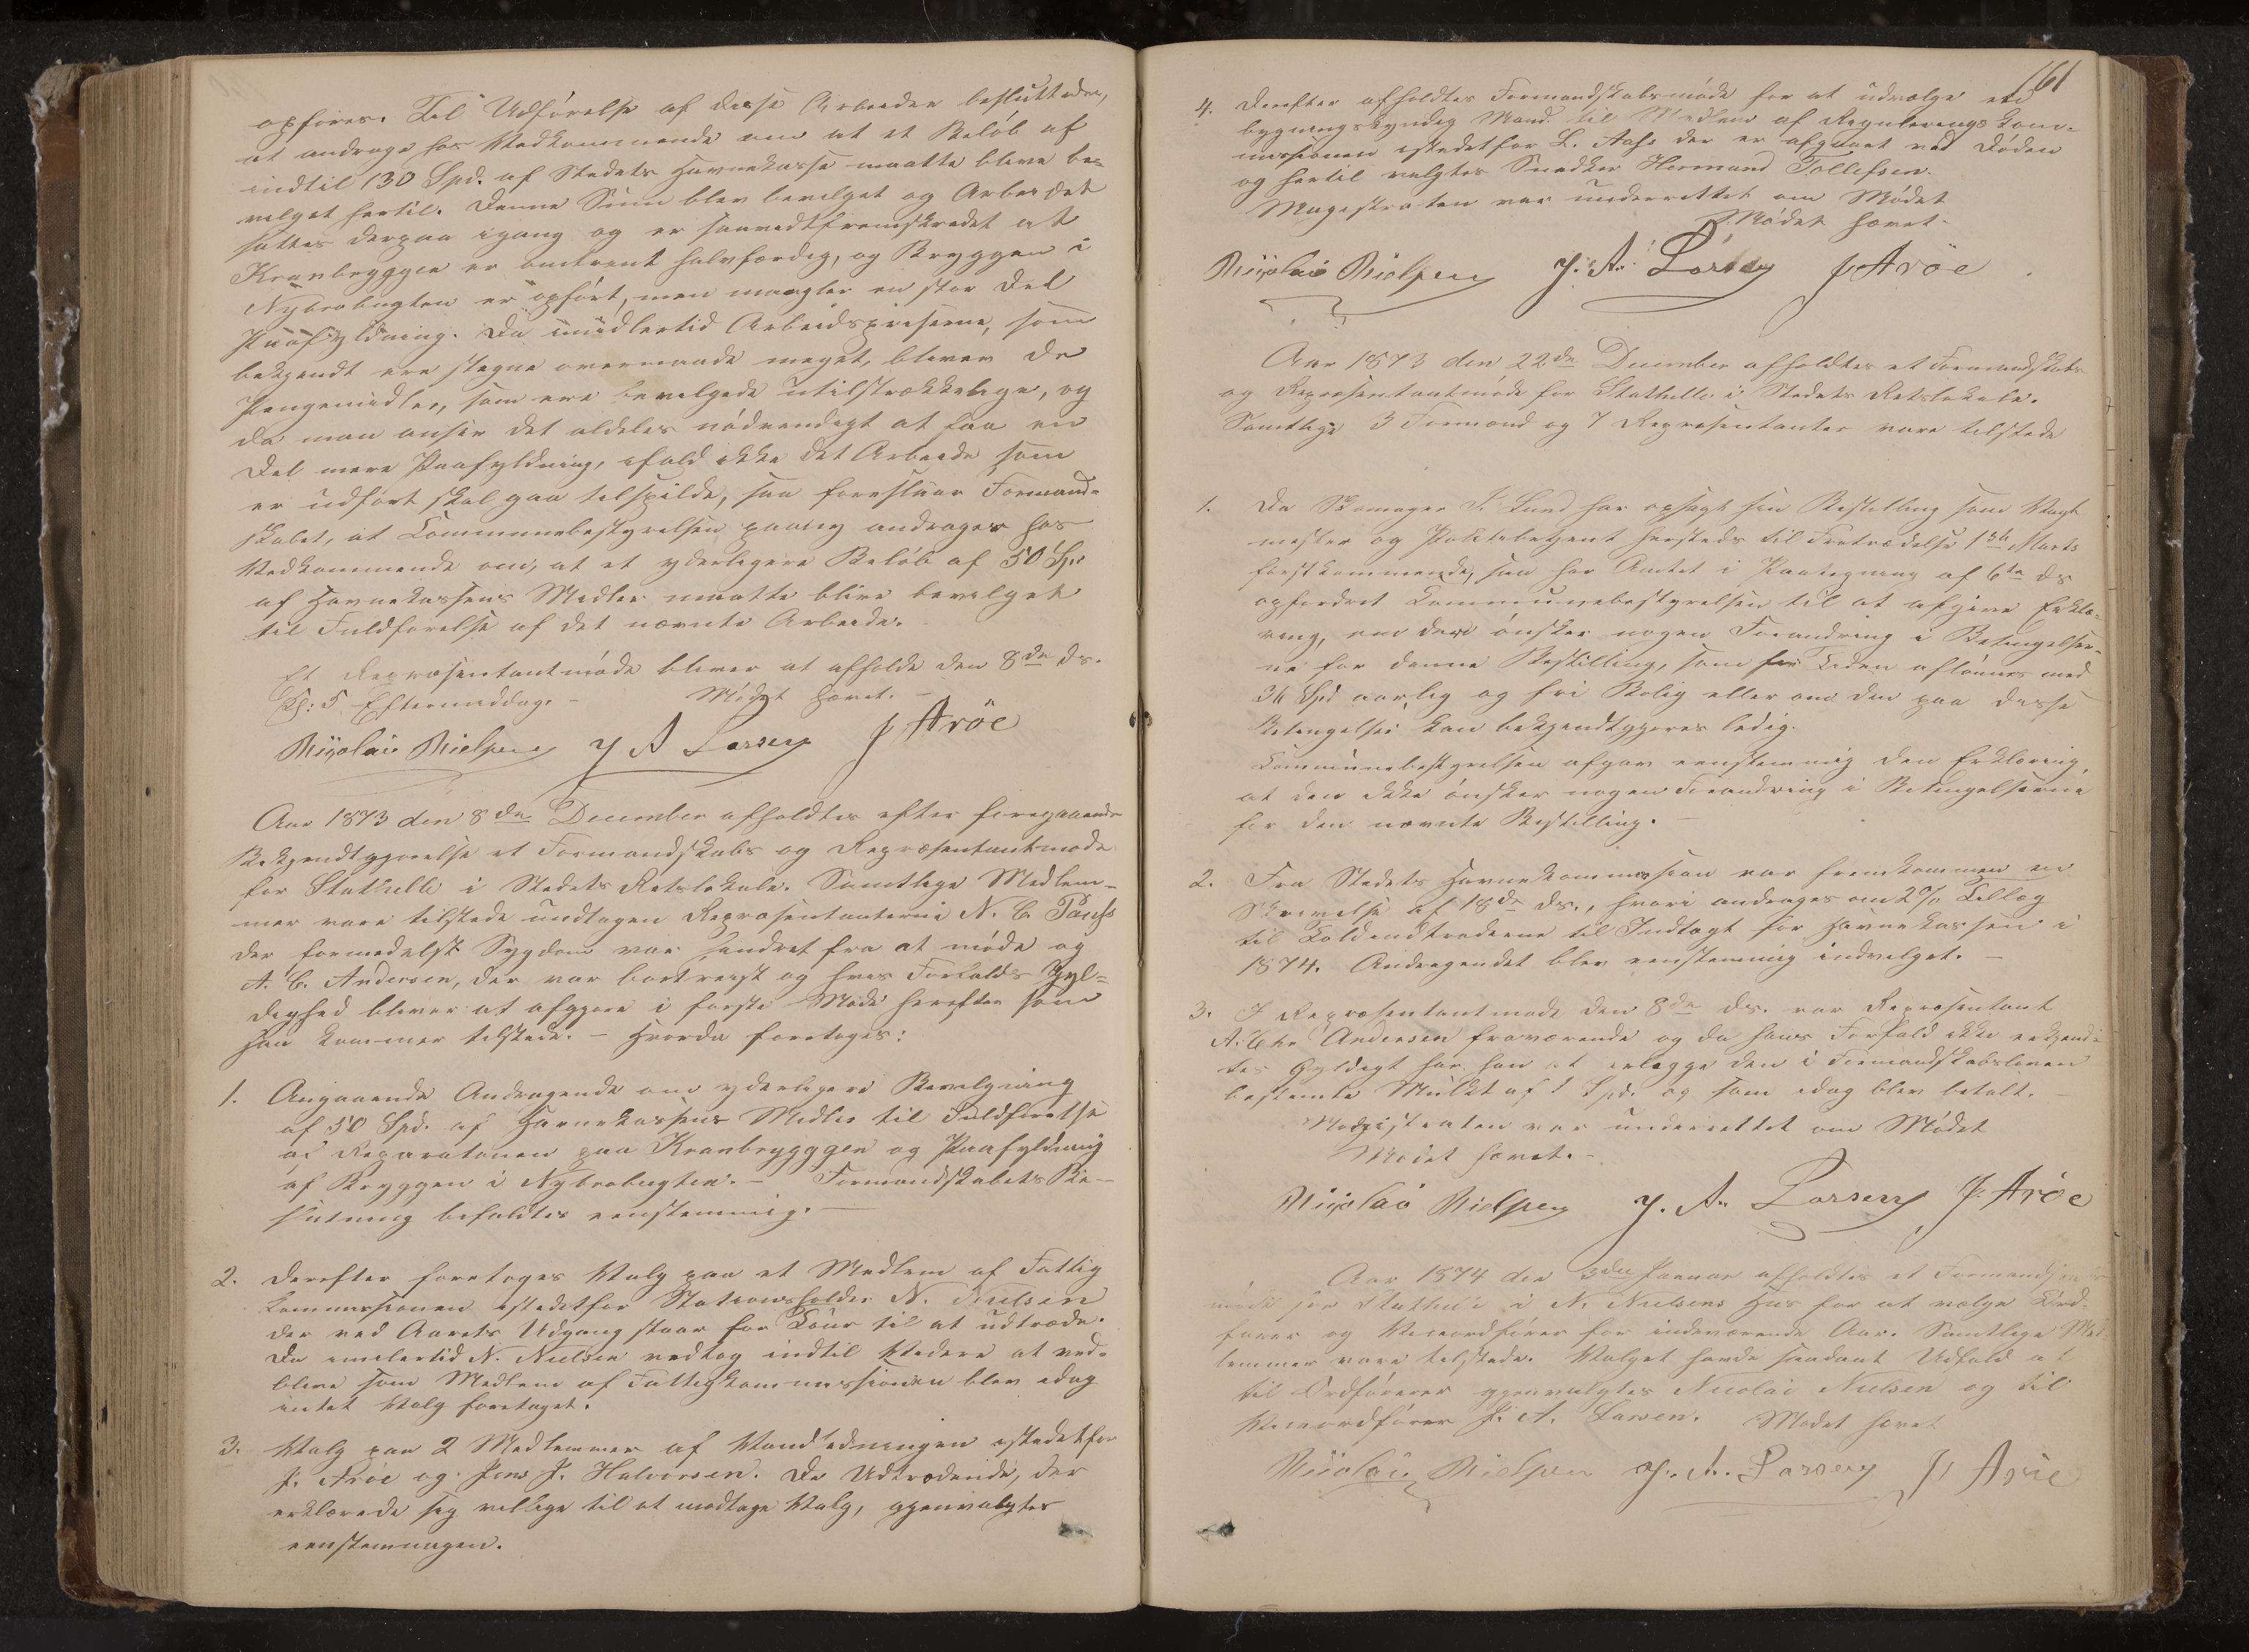 opføres. Til Udførelse af disse Arbeider besluttedes,
at andrage hos Vedkommende om at et Beløb af
indtil 130 Spd. af Stedets Havnekasse maatte blive be-
vilget hertil. Denne Sum blev bevilget og Arbeidet
sattes derpaa igang og er saavidt fremskredet at
Kranbryggen er omtrent halvfærdig, og Bryggen i
Nybrobugten er opført, men mangler en stor Del
Paafyldning. Da imidlertid Arbeidspriserne, som
bekjendt ere stegne overmaade meget, bliver de
Pengemidler, som ere bevilgede utilstrækkelige, og
da man anser det aldeles nødvendigt at faa en
Del mere Paafyldning, ifald ikke det Arbeide som
er udført skal gaa tilspilde, saa foreslaar Formand-
skabet, at Communebestyrelsen paany andrager hos
Vedkommende om, at et yderligere Beløb af 50 Spd
af Havnekassens Midler maatte blive bevilget
til Fuldførelse af det nævnte Arbeide.
Et Repræsentantmøde bliver at afholde den 8de ds.
Kl: 5 Eftermiddag. - Mødet hævet. -
Nicolai Nielsen J A Larsen J Arøe
Aar 1873 den 8de December afholdtes efter foregaaende
Bekjendtgjørelse et Formandskabs og Repræsentantmøde
for Stathelle i Stedets Retslokale. Samtlige Medlem-
mer vare tilstede undtagen Repræsentanterne N. C. Pauss
der formedelst Sygdom var hindret fra at møde og
A. C. Andersen, der var bortreist og hvis Forfalds Gyl-
dighed bliver at afgjøre i første Møde herefter som
han kommer tilstede. - Hvorda foretoges:
1. Angaaende Andragende om yderligere Bevilgning
af 50 Spd. af Havnekassens Midler til Fuldførelse
af Reparationen paa Kranbryggen og Paafyldning
af Bryggen i Nybrobugten. - Formandskabets Be-
slutning bifaldtes eenstemmig. -
2. Derefter foretoges Valg paa et Medlem af Fattig
kommissionen istedetfor Stationsholder N. Nielsen
der ved Aarets Udgang staar for Tour til at udtræde.
Da imidlertid N. Nielsen vedtog indtil Videre at ved-
blive som Medlem af Fattigkommissionen blev idag
intet Valg foretaget.
3. Valg paa 2 Medlemmer af Vandledningen istedetfor
J. Arøe og Jens J. Halvorsen. De Udtrædende, der
erklærede sig villige til at modtage Valg, gjenvalgtes
eenstemmigen.
161
4. Derefter afholdtes Formandskabsmøde for at udvælge en
bygningskyndig Mand til Medlem af Regulerings Kom-
missionen istedetfor L. Aass der er afgaaet ved Døden
og hertil valgtes Snedker Hermand Tollefsen.
Magistraten var underrettet om Mødet
Mødet hævet.
Nicolai Nielsen J. A. Larsen J Arøe
Aar 1873 den 22de December afholdtes et Formandskabs
og Repræsentantmøde for Stathelle i Stedets Retslokale.
Samtlige 3 Formænd og 7 Repræsentanter vare tilstede
1. Da Skomager F. Lund har opsagt sin Bestilling som Vagt
mester og Politibetjent hersteds til Fratrædelse 1ste Marts
førstkommende, saa har Amtet i Paategning af 6te ds
opfordret Kommunebestyrelsen til at afgive Erklæ-
ring, om den ønsker nogen Forandring i Betingelser-
ne for denne Bestilling, som for Tiden aflønnes med
36 Spd aarlig og fri Bolig eller om den paa disse
Betingelser kan bekjendtgjøres ledig.
Communebestyrelsen afgav eenstemmig den Erklæring,
at den ikke ønsker nogen Forandring i Betingelserne
for den nævnte Bestilling. -
2. Fra Stedets Havnekommission var fremkommen en
Skrivelse af 18de ds., hvori andrages om 2% Tillæg
til Toldindtræderne til Indtægt for Havnekassen i
1874. Andragendet blev eenstemmig indvilget. -
3. I Repræsentantmøde den 8de ds. var Repræsentant
A. Chr Andersen fraværende og da hans Forfald ikke erkjend-
tes Gyldigt har han at erlægge den i Formandskabsloven
bestemte Mulkt af 1 Spd. og som idag blev betalt. -
Magistraten var underrettet om Mødet
Mødet hævet. -
Nicolai Nielsen J. A. Larsen J. Arøe
Aar 1874 den 3die Januar afholdtes et
møde for Stathelle i N. Nielsens Hus for at vælge Ord-
fører og Viceordfører for indeværende Aar. Samtlige Med
lemmer vare tilstede. Valget havde saadant Udfald at
til Ordfører gjenvalgtes Nicolai Nielsen og til
Viceordfører J. A. Larsen. Mødet hævet
Nicolai Nielsen J. A. Larsen J Arøe